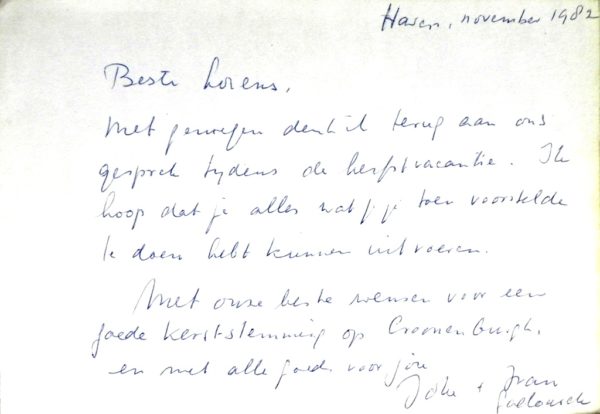 Haren, november 1982
Beste Lorens,
Met genoegen denk ik terug aan ons
gesprek tijdens de herfstvacantie. Ik
hoop dat je alles wat jij je toen voorstelde
te doen hebt kunnen uitvoeren.
Met onze beste wensen voor een
goede kerststemming op Croonenburgh,
en met alle goeds voor jou
Joke + Fran